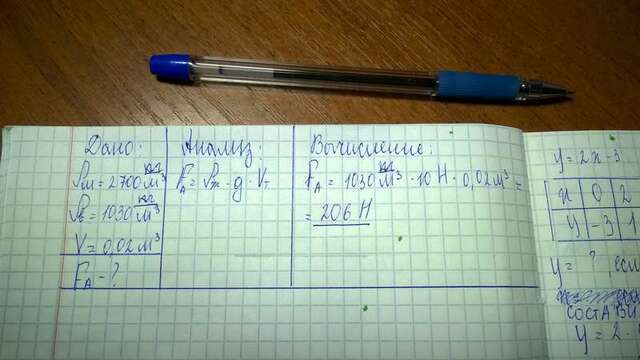 Дано:
ρм = 2700 кг/м³
ρв = 1030 кг/м³
V = 0,02 м³
Fₐ - ?
Анализ:
Fₐ = ρж · g · Vт
Вычисление:
Fₐ = 1030 кг/м³ · 10 Н · 0,02 м³ =
= 206 Н
y = 2x - 3
x 0 2
y -3 1
y = ?
y = 2